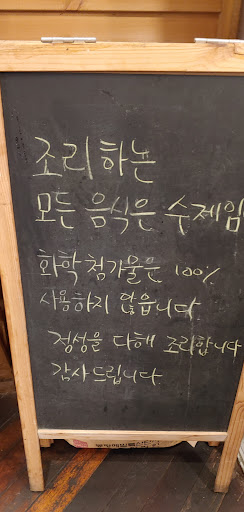 조리하는
모든 음식은 수제임
화학 첨가물은 100%
사용하지 않습니다
정성을 다해 조리합니다
감사드립니다